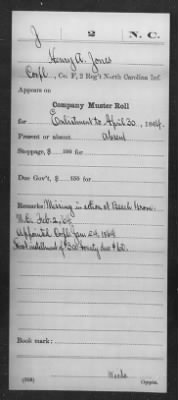 J 2 N. C.
Henry A. Jones
Corpl., Co. F, 2 Reg't North Carolina Inf.
Appears on
Company Muster Roll
for Enlistment to April 30, 1864.
Present or absent Absent
Stoppage, $ 100 for
Due Gov't, $ 100 for
Remarks: Missing in action at Beech Grove
N.C. Feb. 2, 64
Appointed Corpl Jan 24, 1864
First installment of $ bounty due $60.
Book mark:
(358) Copyist.